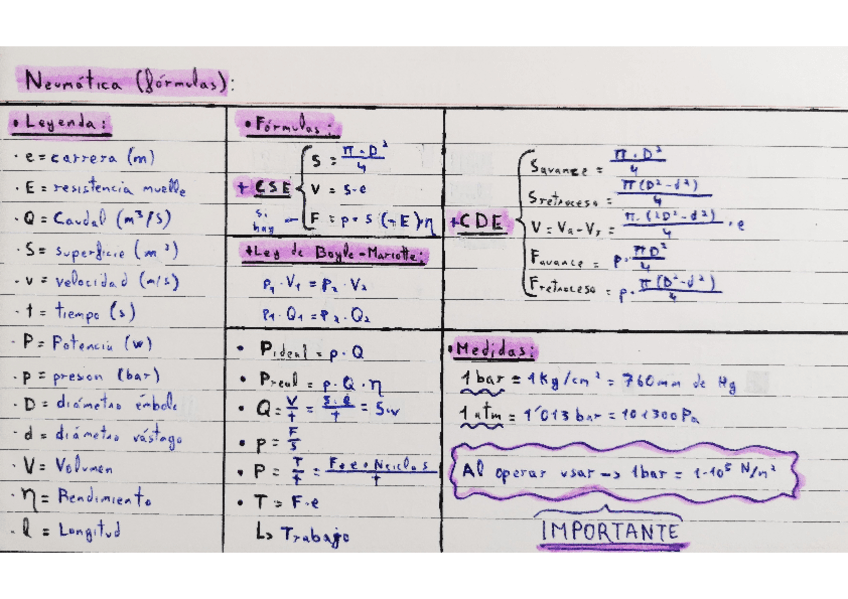 Neumática (fórmulas):
• Leyenda:
· e = carrera (m)
· E = resistencia muelle
· Q = Caudal (m³/s)
· S = superficie (m²)
· v = velocidad (m/s)
· t = tiempo (s)
· P = Potencia (w)
· p = presion (bar)
· D = diámetro émbolo
· d = diámetro vástago
· V = Volumen
· η = Rendimiento
· l = Longitud
• Fórmulas:
+ CSE
S = π · D² / 4
V = s · e
si hay → F = p · s (- E) · η
+ Ley de Boyle-Mariotte:
P₁ · V₁ = P₂ · V₂
P₁ · Q₁ = P₂ · Q₂
• Pideal = p · Q
• Preal = p · Q · η
• Q = V/t = S·e/t = S·v
• p = F/S
• P = T/t = F·e·Nciclos/t
• T = F · e
↳ Trabajo
+ CDE
Savance = π · D² / 4
Sretroceso = π (D² - d²) / 4
V = Va - Vr = π · (2D² - d²) / 4 · e
Favance = p · πD² / 4
Fretroceso = p · π (D² - d²) / 4
• Medidas:
1 bar = 1 Kg/cm² = 760 mm de Hg
1 atm = 1'013 bar = 101300 Pa
Al operar usar → 1 bar = 1·10⁵ N/m²
IMPORTANTE